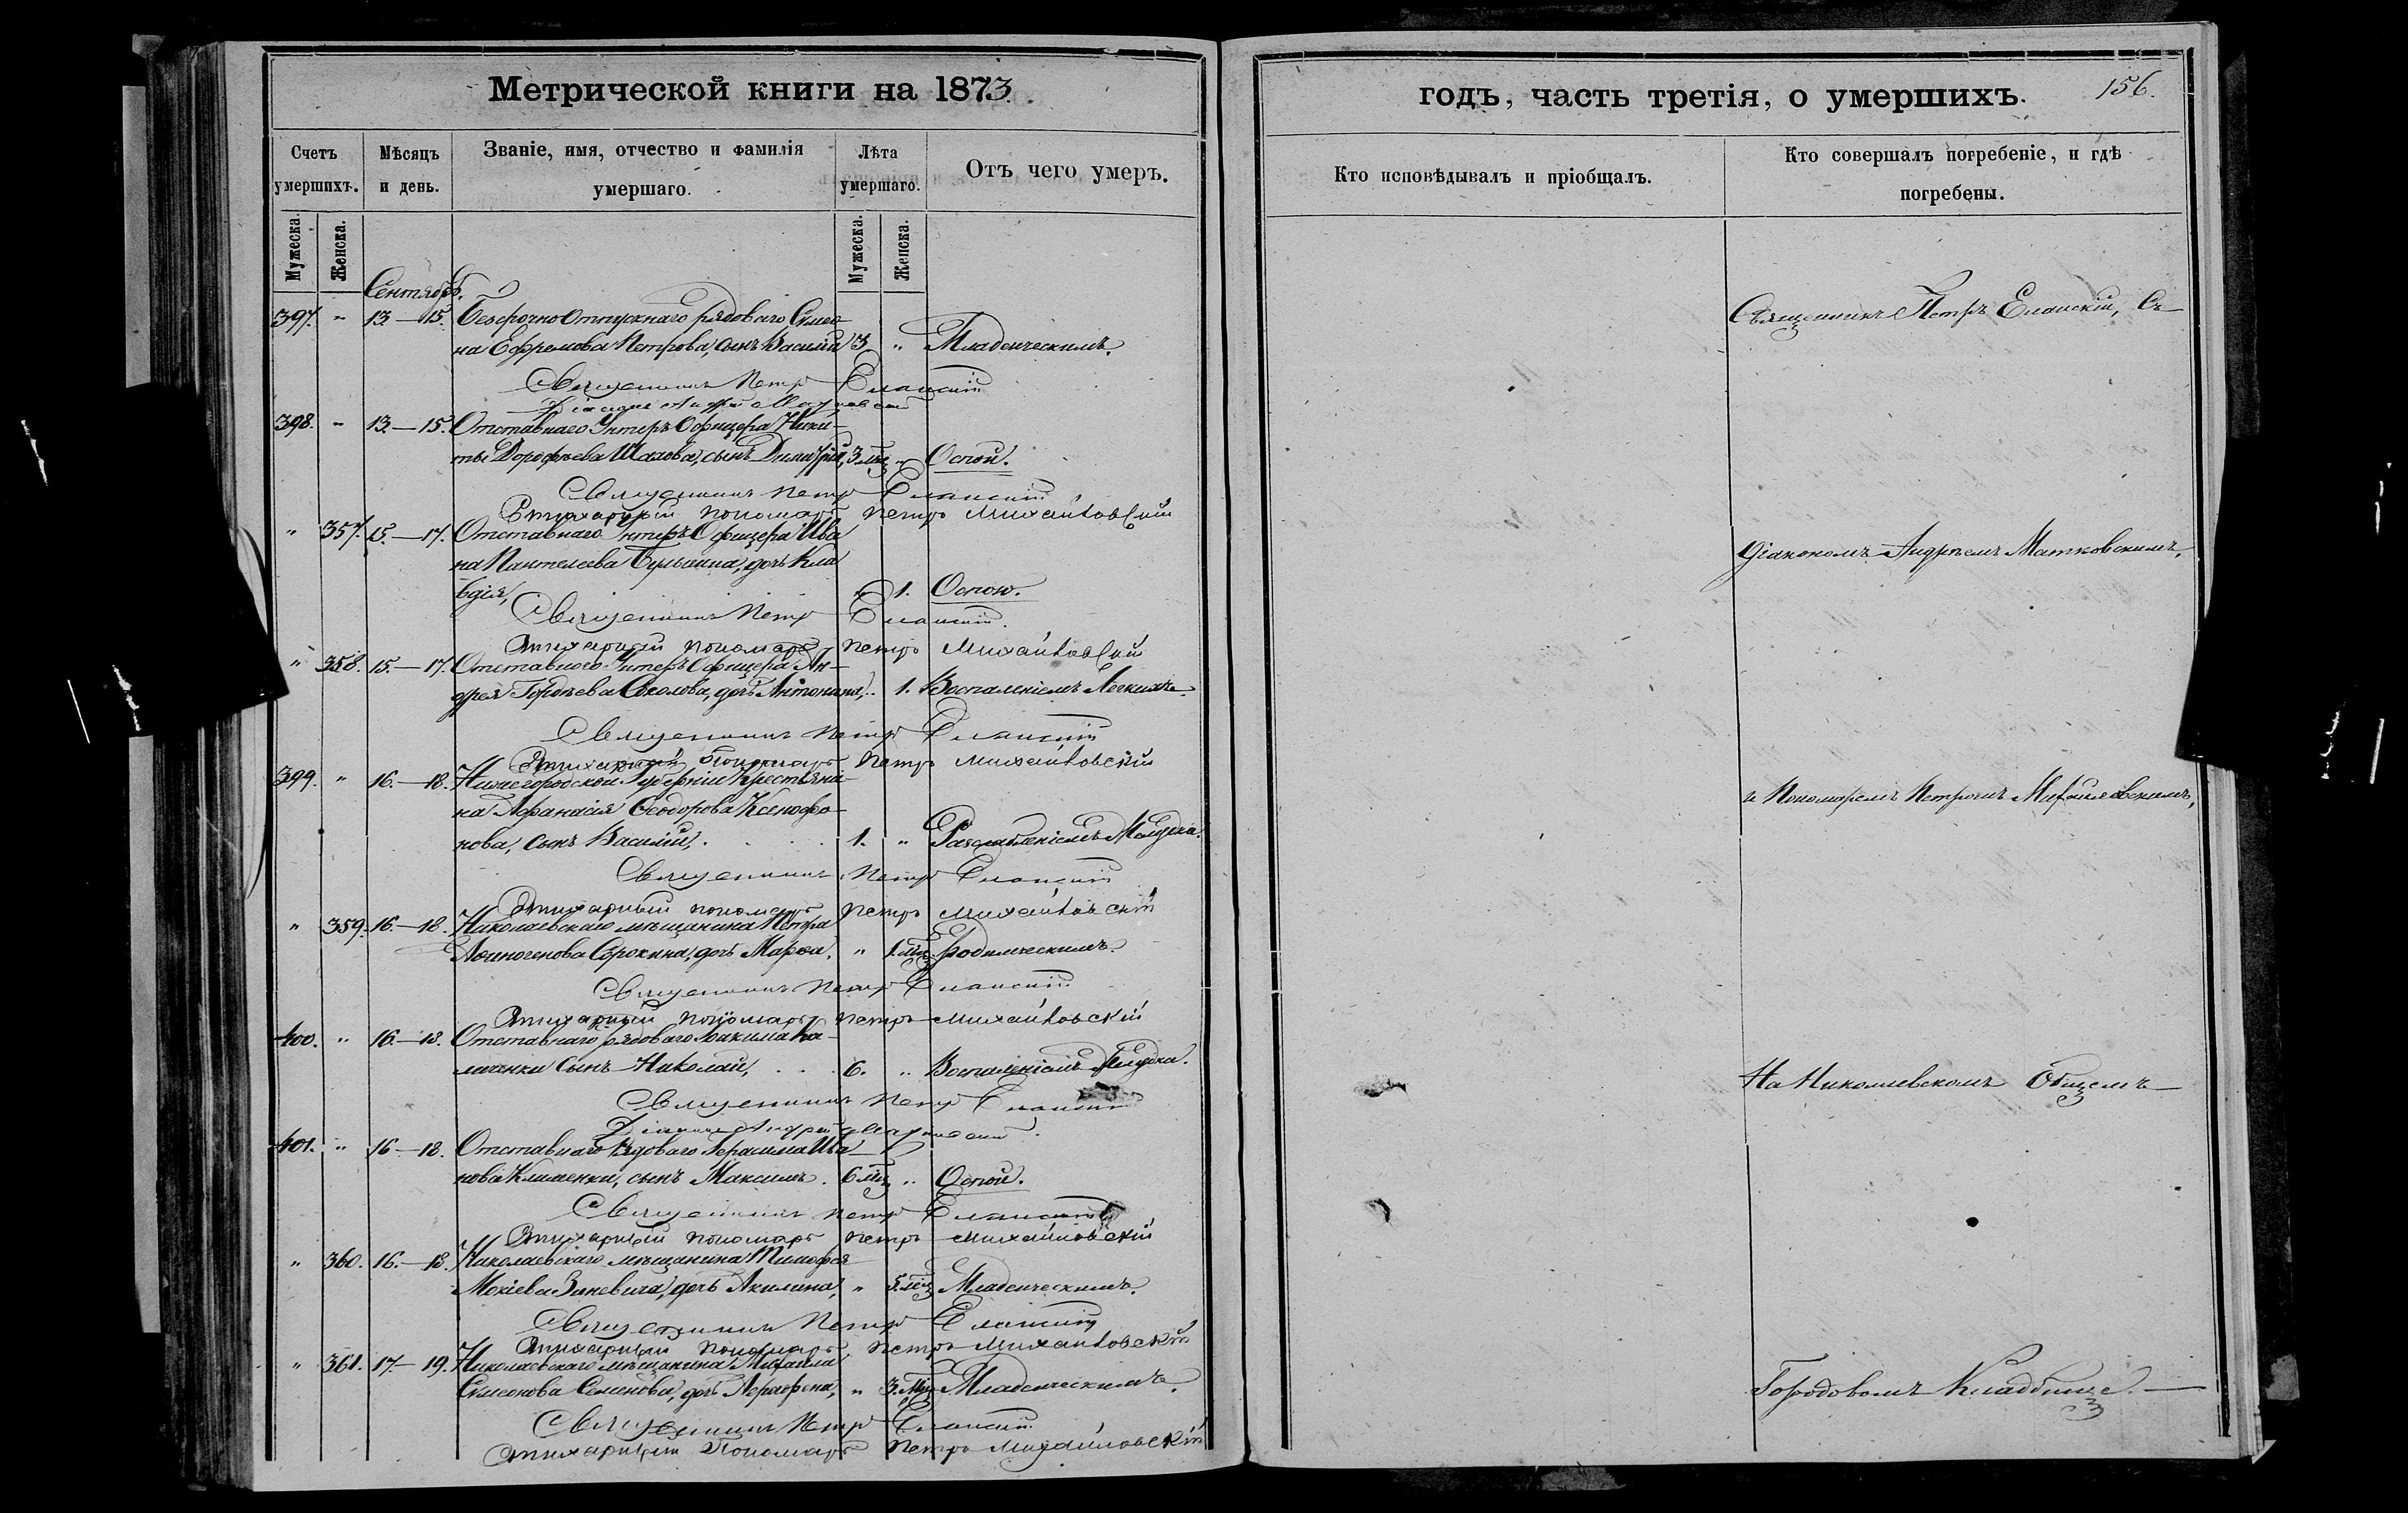 Метрической книги на 1873.
Счетъ умершихъ.
Мѣсяцъ и день.
Званіе, имя, отчество и фамилія умершаго.
Лѣта умершаго.
Отъ чего умеръ.
Мужеска.
Женска.
Мужеска.
Женска.
Сентябрь.
397. " 13.—15. Безсрочно Отпускнаго рядоваго Симео-
на Ефремова Петрова, сынъ Василій 3 " Младенческимъ.
Священникъ Петръ Еланскій
Діаконъ Андрей
398. " 13.—15. Отставнаго Унтеръ Офицера Ники-
ты Дорофѣева Шахова, сынъ Димитрій, 3 мѣс " Оспой.
Священникъ Петръ Еланскій
Стихарный пономарь Петръ Михайловскій
" 357. 15.—17. Отставнаго Унтеръ Офицера Ива
на Пантелеева дочь Кла
вдія, " 1. Оспою.
Священникъ Петръ Еланскій.
Стихарный пономарь Петръ Михайловскій
" 358. 15.—17. Отставнаго Унтеръ Офицера Ан-
дрея Гордѣева Соколова, дочь Антонина, " 1. Воспаленіемъ Легкихъ.
Священникъ Петръ Еланскій
Стихарный Пономарь Петръ Михайловскій
399. " 16.—18. Нижегородской Губерніи Крестьяни-
на Афанасія Ѳеодорова Ксенофо-
нова, сынъ Василій, 1. " Разслабленіемъ Желудка.
Священникъ Петръ Еланскій
Стихарный пономарь Петръ Михайловскій
" 359. 16.—18. Николаевскаго мѣщанина Петра
Аѳиногенова Сорокина, дочь Марѳа, " 1. мѣс Родимческимъ.
Священникъ Петръ Еланскій
Стихарный пономарь Петръ Михайловскій
400. " 16.—18. Отставнаго рядоваго Іоакима Ка-
личенки сынъ Николай, 6. " Воспаленіемъ Желудка.
Священникъ Петръ Еланскій
Діаконъ Андрей
401. " 16.—18. Отставнаго Рядоваго Герасима Ива-
нова Клименки, сынъ Максимъ. 6 мѣс " Оспой.
Священникъ Петръ Еланскій
Стихарный пономарь Петръ Михайловскій
" 360. 16.—18. Николаевскаго мѣщанина Тимофея
Мокіева Зиневича, дочь Акилина, " 5. мѣс Младенческимъ.
Священникъ Петръ Еланскій
Стихарный пономарь Петръ Михайловскій
" 361. 17.—19. Николаевскаго мѣщанина Михаила
Симеонова Семенова, дочь " 3. мѣс Младенческимъ.
Священникъ Петръ Еланскій
Стихарный Пономарь Петръ Михайловскій
годъ, часть третія, о умершихъ.
156.
Кто исповѣдывалъ и пріобщалъ.
Кто совершалъ погребеніе, и гдѣ погребены.
Священникъ Петръ Еланскій, Съ
Діакономъ Андреемъ Матковскимъ,
и Пономаремъ Петромъ Михайловскимъ,
На Николаевскомъ Общемъ
Городовомъ Кладбище.